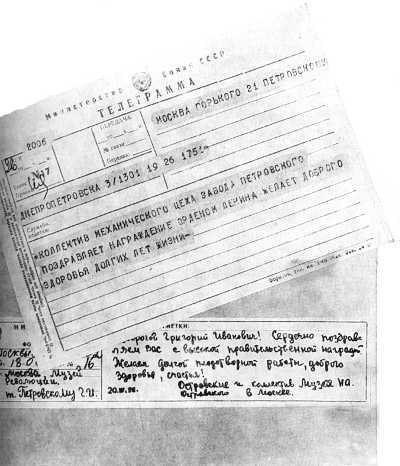 Министерство связи СССР
ТЕЛЕГРАММА
МОСКВА ГОРЬКОГО 21 ПЕТРОВСКОМУ
2006
ПЕРЕДАЧА
ДНЕПРОПЕТРОВСКА 3/1301 19 26 1751=
=КОЛЛЕКТИВ МЕХАНИЧЕСКОГО ЦЕХА ЗАВОДА ПЕТРОВСКОГО
ПОЗДРАВЛЯЕТ НАГРАЖДЕНИЕ ОРДЕНОМ ЛЕНИНА ЖЕЛАЕТ ДОБРОГО
ЗДОРОВЬЯ ДОЛГИХ ЛЕТ ЖИЗНИ=
Григорий Иванович! Сердечно поздрав-
ляем Вас с высокой правительственной наградой
Желаем долгой плодотворной работы, доброго
здоровья, счастья!
Островские и коллектив Музея Н.А.
Островского в Москве.
Москва Музей
Революции,
т. Петровскому Г.И.